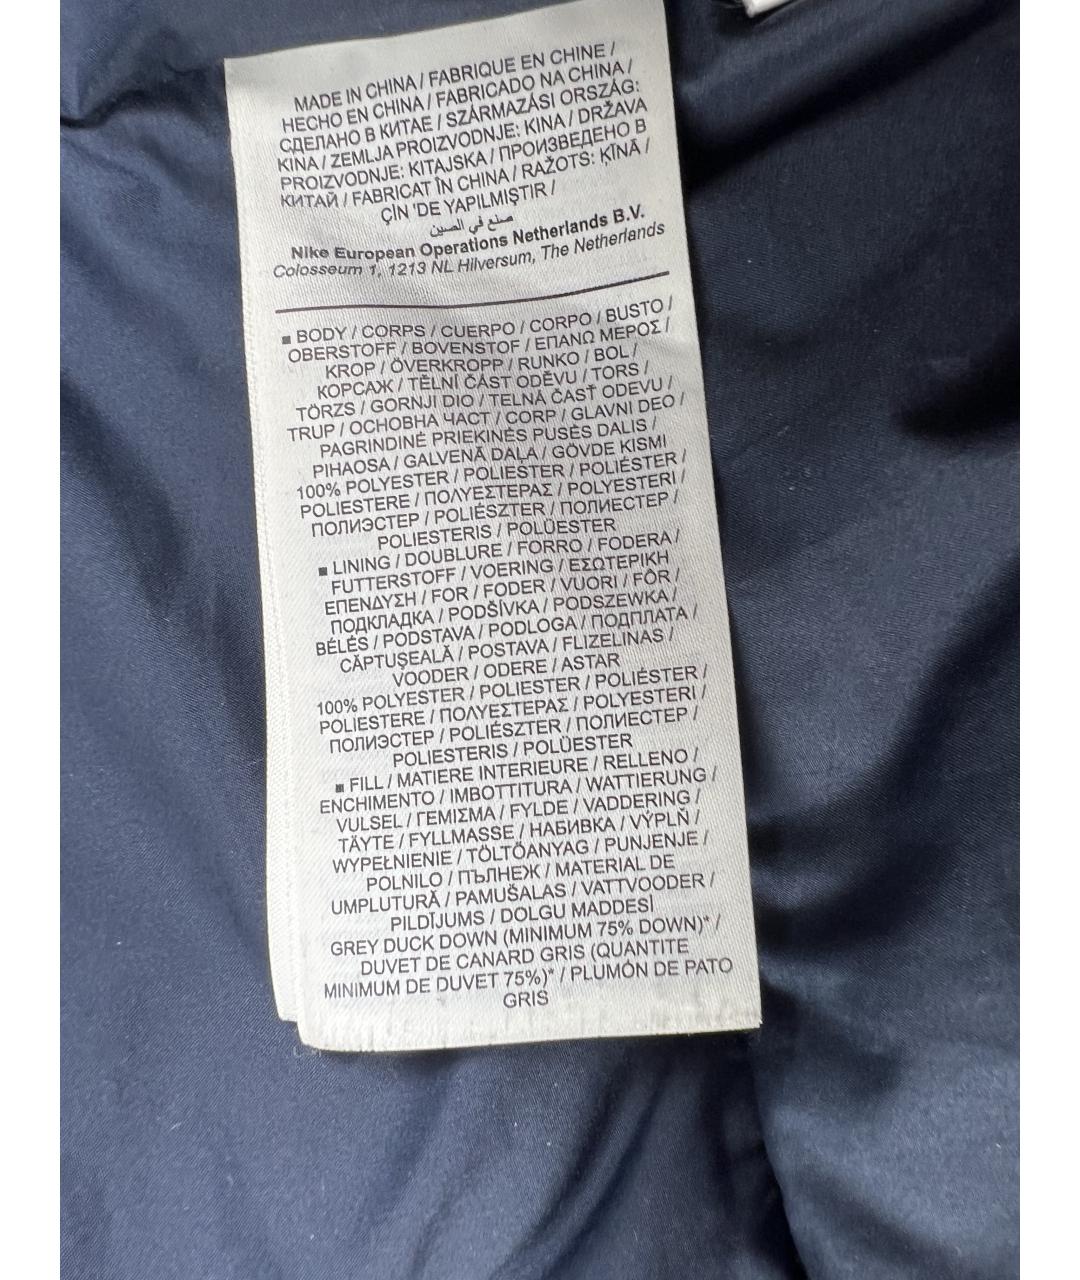 MADE IN CHINA / FABRIQUE EN CHINE /
HECHO EN CHINA / FABRICADO NA CHINA /
СДЕЛАНО В КИТАЕ / SZÁRMAZÁSI ORSZÁG:
KINA / ZEMLJA PROIZVODNJE: KINA / DRŽAVA
PROIZVODNJE: KITAJSKA / ПРОИЗВЕДЕНО В
КИТАЙ / FABRICAT ÎN CHINA / RAŽOTS: ĶĪNĀ /
ÇİN 'DE YAPILMIŞTIR /
صنع في الصين
Nike European Operations Netherlands B.V.
Colosseum 1, 1213 NL Hilversum, The Netherlands
■ BODY / CORPS / CUERPO / CORPO / BUSTO /
OBERSTOFF / BOVENSTOF / ΕΠΑΝΩ ΜΕΡΟΣ /
KROP / ÖVERKROPP / RUNKO / BOL /
КОРСАЖ / TĚLNÍ ČÁST ODĚVU / TORS /
TÖRZS / GORNJI DIO / TELNÁ ČASŤ ODEVU /
TRUP / ОСНОВНА ЧАСТ / CORP / GLAVNI DEO /
PAGRINDINĖ PRIEKINĖS PUSĖS DALIS /
PIHAOSA / GALVENĀ DAĻA / GÖVDE KISMI
100% POLYESTER / POLIESTER / POLIÉSTER /
POLIESTERE / ΠΟΛΥΕΣΤΕΡΑΣ / POLYESTERI /
ПОЛИЭСТЕР / POLIÉSZTER / ПОЛИЕСТЕР /
POLIESTERIS / POLÜESTER
■ LINING / DOUBLURE / FORRO / FODERA /
FUTTERSTOFF / VOERING / ΕΣΩΤΕΡΙΚΗ
ΕΠΕΝΔΥΣΗ / FOR / FODER / VUORI / FÔR /
ПОДКЛАДКА / PODŠÍVKA / PODSZEWKA /
BÉLÉS / PODSTAVA / PODLOGA / ПОДПЛАТА /
CĂPTUŞEALĂ / POSTAVA / FLIZELINAS /
VOODER / ODERE / ASTAR
100% POLYESTER / POLIESTER / POLIÉSTER /
POLIESTERE / ΠΟΛΥΕΣΤΕΡΑΣ / POLYESTERI /
ПОЛИЭСТЕР / POLIÉSZTER / ПОЛИЕСТЕР /
POLIESTERIS / POLÜESTER
■ FILL / MATIERE INTERIEURE / RELLENO /
ENCHIMENTO / IMBOTTITURA / WATTIERUNG /
VULSEL / ΓΕΜΙΣΜΑ / FYLDE / VADDERING /
TÄYTE / FYLLMASSE / НАБИВКА / VÝPLŇ /
WYPEŁNIENIE / TÖLTŐANYAG / PUNJENJE /
POLNILO / ПЪЛНЕЖ / MATERIAL DE
UMPLUTURĂ / PAMUŠALAS / VATTVOODER /
PILDĪJUMS / DOLGU MADDESİ
GREY DUCK DOWN (MINIMUM 75% DOWN)* /
DUVET DE CANARD GRIS (QUANTITE
MINIMUM DE DUVET 75%)* / PLUMÓN DE PATO
GRIS